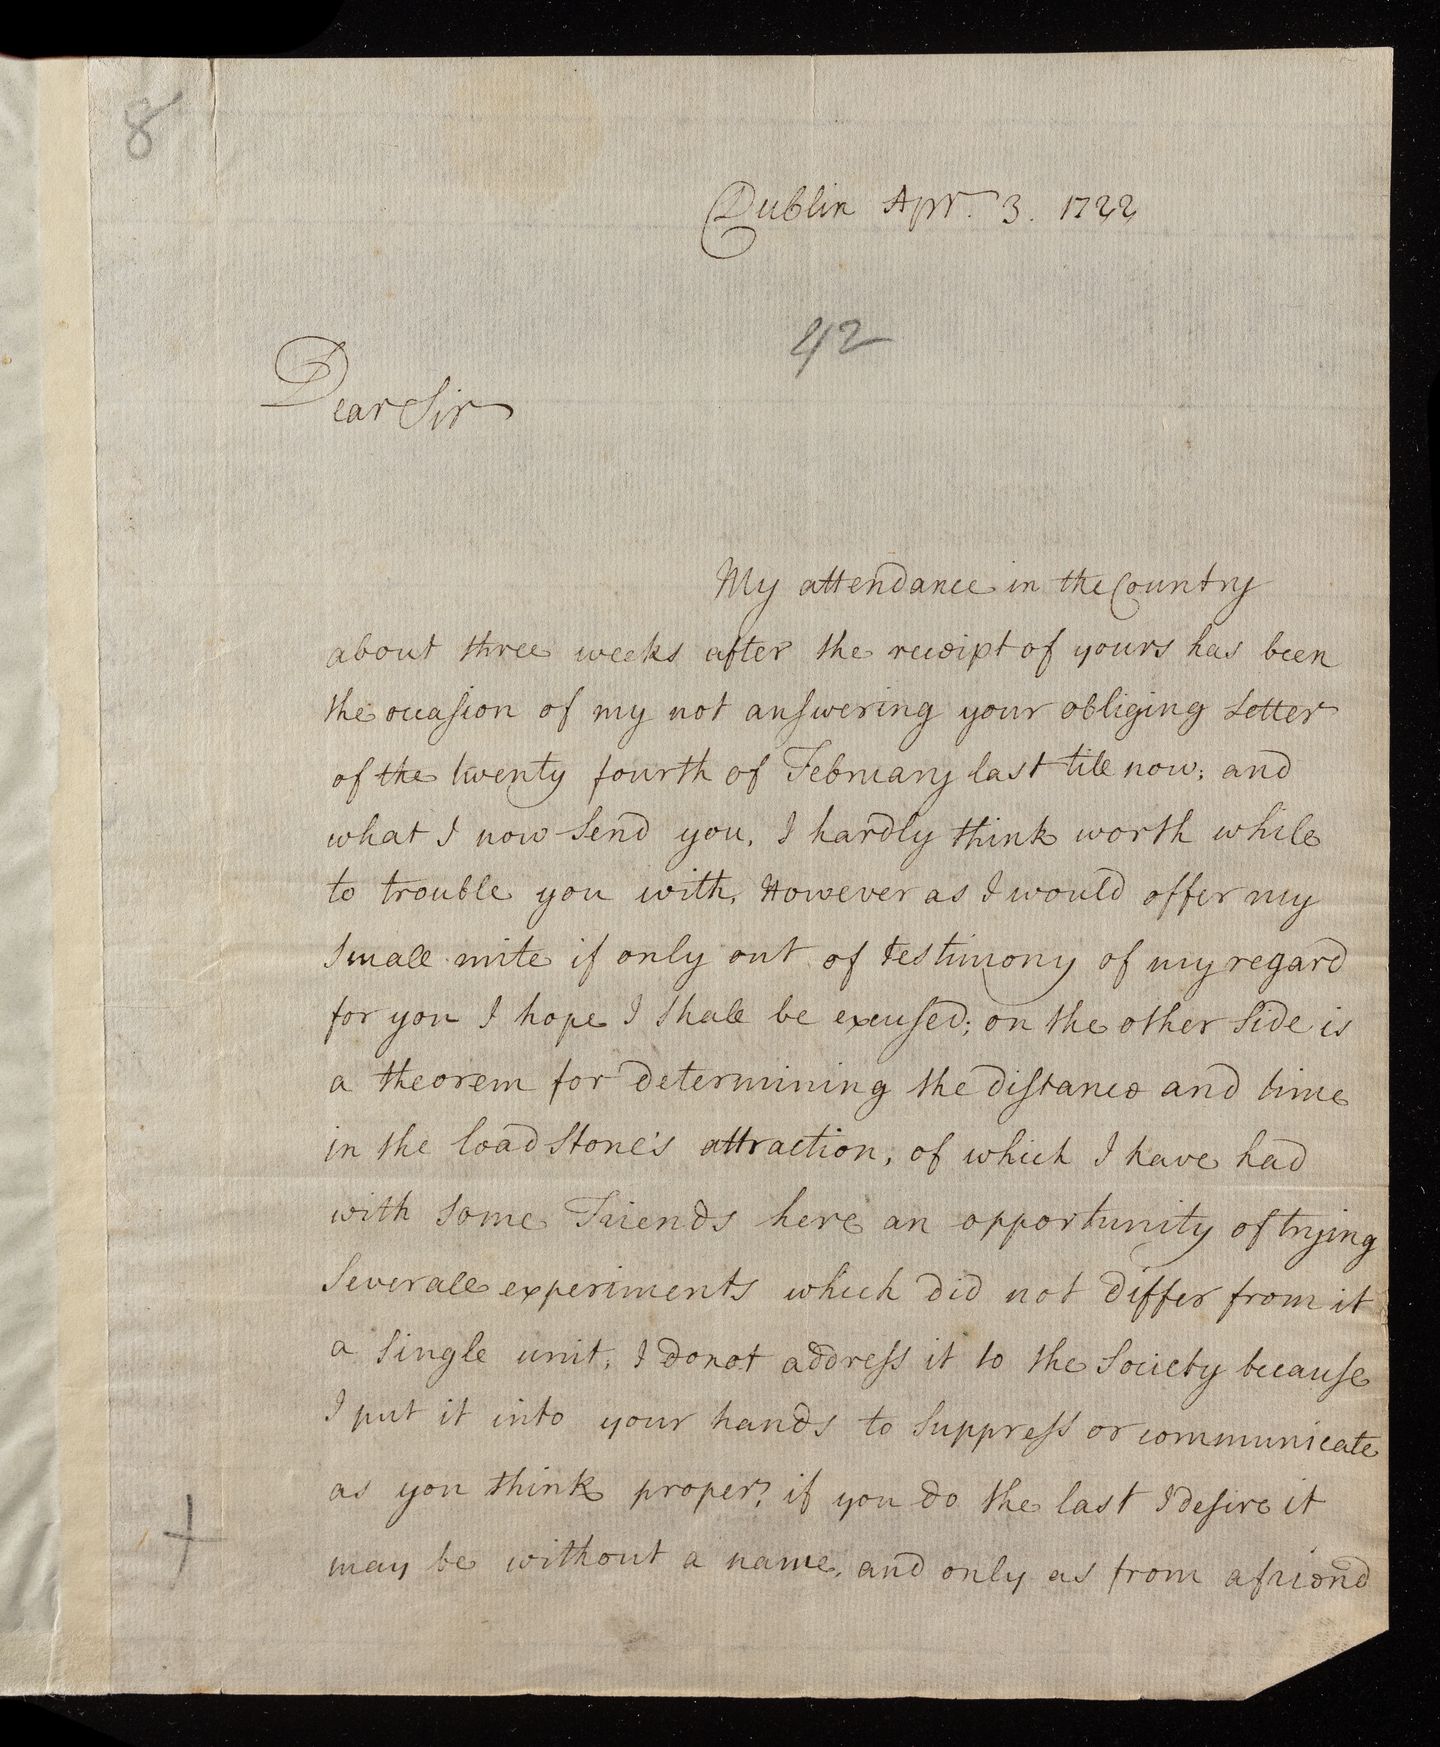 8
Dublin Apr. 3. 1722
42
Dear Sir
My attendance in the Country
about three weeks after the receipt of yours has been
the occasion of my not answering your obliging Letter
of the twenty fourth of February last till now; and
what I now send you, I hardly think worth while
to trouble you with. However as I would offer my
small mite if only out of testimony of my regard
for you I hope I shall be excused; on the other side is
a theorem for determining the distance and time
in the loadstone's attraction, of which I have had
with some Friends here an opportunity of trying
severall experiments which did not differ from it
a single unit. I do not address it to the Society because
I put it into your hands to suppress or communicate
as you think proper, if you do the last I desire it
may be without a name, and only as from a friend